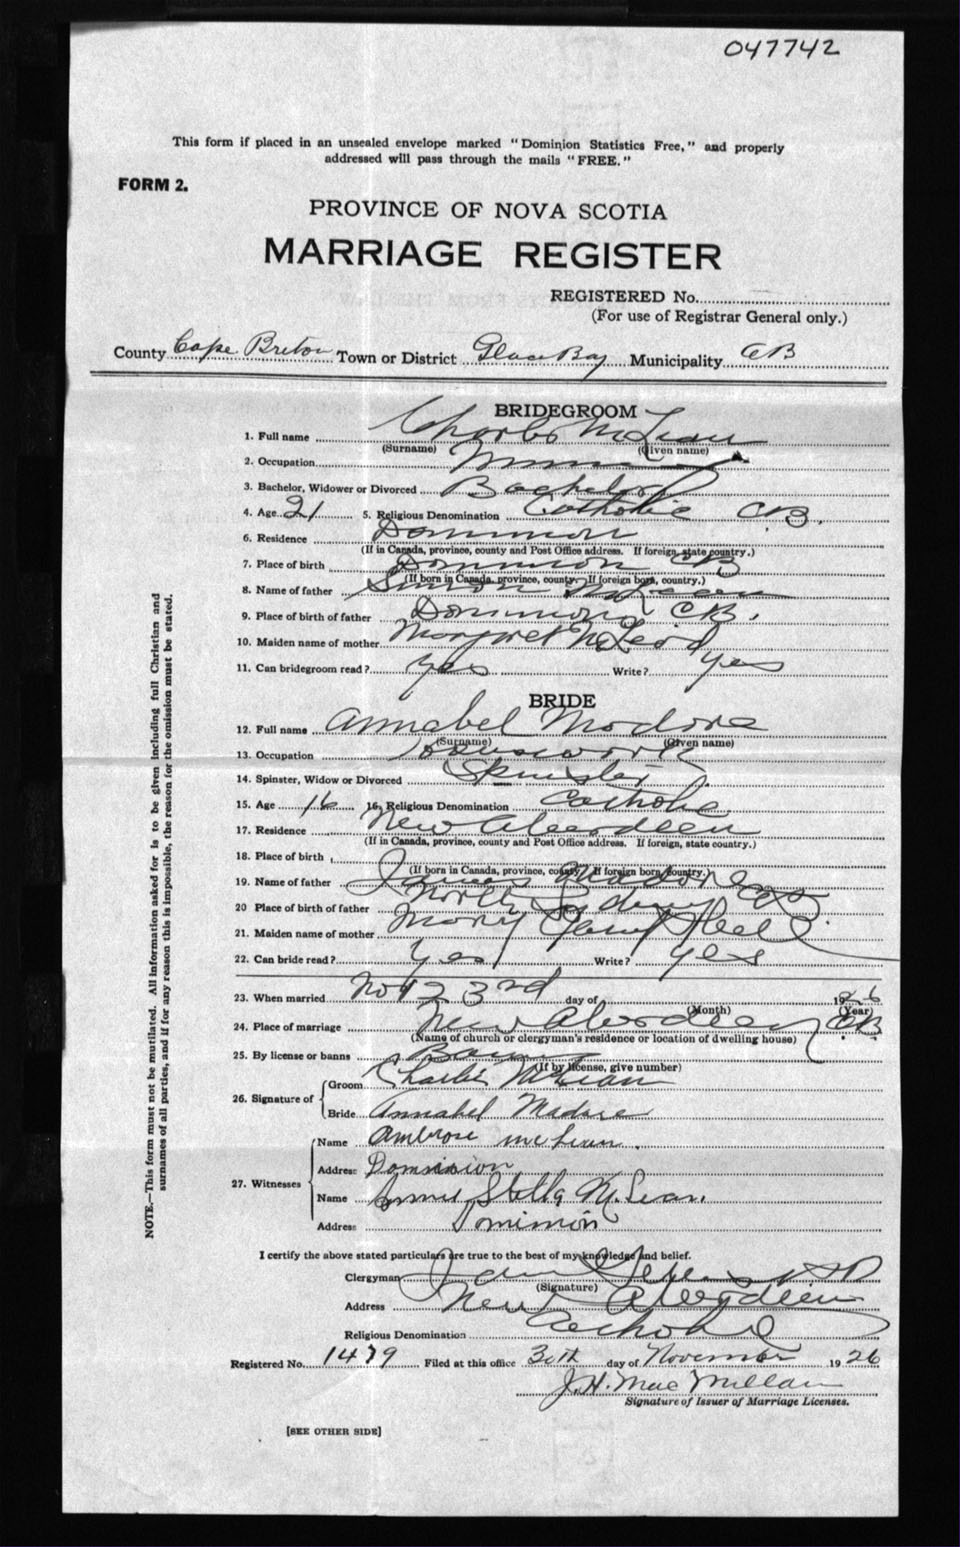 047742
This form if placed in an unsealed envelope marked "Dominion Statistics Free," and properly
addressed will pass through the mails "FREE."
FORM 2.
PROVINCE OF NOVA SCOTIA
MARRIAGE REGISTER
REGISTERED No.
(For use of Registrar General only.)
County Cape Breton Town or District Glace Bay Municipality CB
BRIDEGROOM
1. Full name Charles McLean
(Surname) (Given name)
2. Occupation
3. Bachelor, Widower or Divorced Bachelor
4. Age 21 5. Religious Denomination Catholic C.B.
6. Residence Dominion
(If in Canada, province, county and Post Office address. If foreign, state country.)
7. Place of birth Dominion CB
(If born in Canada, province, county. If foreign born, country.)
8. Name of father Simon McLean
9. Place of birth of father Dominion, CB.
10. Maiden name of mother Margret McLeod
11. Can bridegroom read? Yes Write? yes
BRIDE
12. Full name Annabel Modore
(Surname) (Given name)
13. Occupation Housework
14. Spinster, Widow or Divorced Spinster
15. Age 16 16. Religious Denomination Catholic
17. Residence New Aberdeen
(If in Canada, province, county and Post Office address. If foreign, state country.)
18. Place of birth
(If born in Canada, province, county. If foreign born, country.)
19. Name of father James Madore
20 Place of birth of father North Sydney CB
21. Maiden name of mother Mary
22. Can bride read? Yes Write? yes
23. When married Nov 23rd day of 1926
(Month) (Year)
24. Place of marriage New Aberdeen CB
(Name of church or clergyman's residence or location of dwelling house)
25. By license or banns Banns
(If by license, give number)
26. Signature of Groom Charlie McLean
Bride Annabel Madore
27. Witnesses Name Ambrose McLean.
Address Dominion
Name Stella McLean.
Address Dominion
I certify the above stated particulars are true to the best of my knowledge and belief.
Clergyman
(Signature)
Address New Aberdeen
Religious Denomination Catholic
Registered No. 1479 Filed at this office 30th day of November 1926
J.H. MacMillan
Signature of Issuer of Marriage Licenses.
[SEE OTHER SIDE]
NOTE.—This form must not be mutilated. All information asked for is to be given including full Christian and
surnames of all parties, and if for any reason this is impossible, the reason for the omission must be stated.